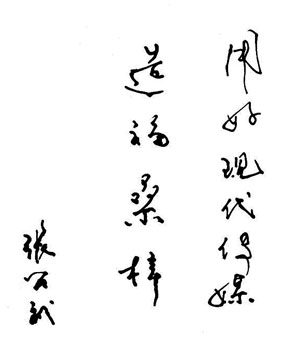 用好现代传媒
造福桑梓
張百武